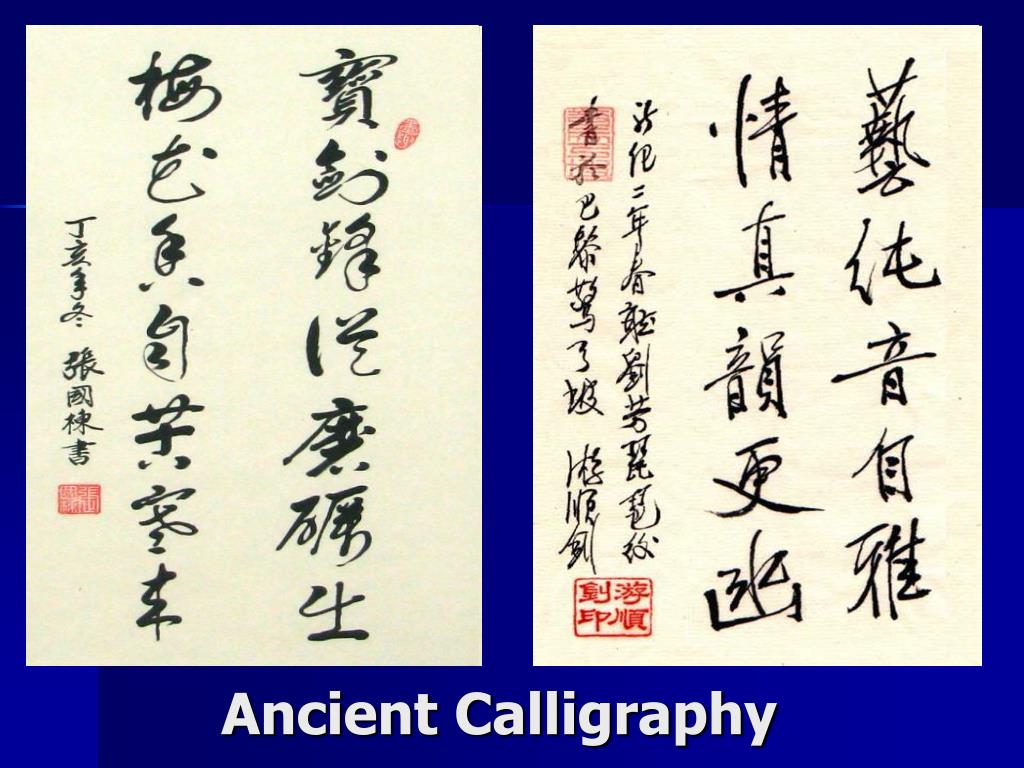 寶劍鋒從磨礪出
梅花香自苦寒來
丁亥年冬 張國棟書
藝純音自雅
情真韻更幽
新紀二年春聽劉芳琵琶後
書於巴黎 弓坡 游順釗
游順釗印
Ancient Calligraphy